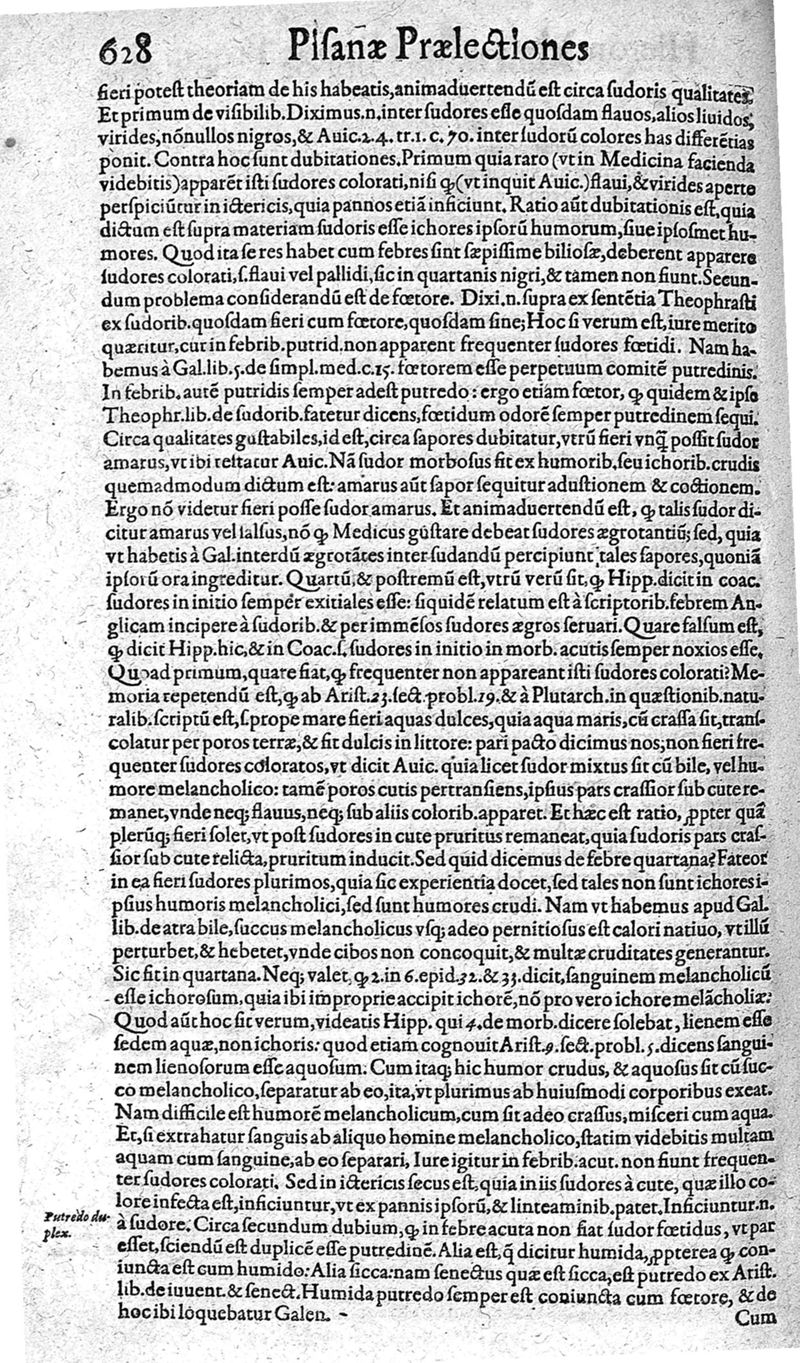 628 Pisanæ Prælectiones
fieri potest theoriam de his habeatis,animaduertendũ est circa sudoris qualitates.
Et primum de visibilib.Diximus.n,inter sudores esse quosdam flauos,alios liuidos,
virides,nõnullos nigros,& Auic.2.4. tr.1. c.70. inter sudorũ colores has differẽtias
ponit. Contra hoc sunt dubitationes. Primum quia raro (vt in Medicina facienda
videbitis)apparẽt isti sudores colorati,nisi ꝙ(vt inquit Auic.)flaui,& virides aperte
perspiciũtur in ictericis,quia pannos etiã inficiunt. Ratio aũt dubitationis est,quia
dictum est supra materiam sudoris esse ichores ipsorũ humorum,siue ipsosmet hu-
mores. Quod ita se res habet cum febres sint sæpissime biliosæ,deberent apparere
sudores colorati,s.flaui vel pallidi,sic in quartanis nigri,& tamen non fiunt.Secun-
dum problema considerandũ est de fœtore. Dixi.n.supra ex sentẽtia Theophrasti
ex sudorib.quosdam fieri cum fœtore,quosdam sine;Hoc si verum est,iure merito
quæritur,cur in febrib.putrid.non apparent frequenter sudores fœtidi. Nam ha-
bemus à Gal.lib.5.de simpl.med.c.15. fœtorem esse perpetuum comitẽ putredinis.
In febrib.autẽ putridis semper adest putredo: ergo etiam fœtor, ꝙ quidem & ipse
Theophr.lib.de sudorib.fatetur dicens,fœtidum odorẽ semper putredinem sequi.
Circa qualitates gustabiles,id est,circa sapores dubitatur,vtrũ fieri vnꝗ̃ possit sudor
amarus,vt ibi testatur Auic. Nã sudor morbosus fit ex humorib.seu ichorib.crudis
quemadmodum dictum est: amarus aũt sapor sequitur adustionem & coctionem.
Ergo nõ videtur fieri posse sudor amarus. Et animaduertendũ est, ꝙ talis sudor di-
citur amarus vel salsus,nõ ꝙ Medicus gustare debeat sudores ægrotantiũ; sed, quia
vt habetis à Gal.interdũ ægrotãtes inter sudandũ percipiunt tales sapores,quoniã
ipsorũ ora ingreditur. Quartũ,& postremũ est,vtrũ verũ sit,ꝙ Hipp.dicit in coac.
sudores in initio semper exitiales esse: siquidẽ relatum est à scriptorib.febrem An-
glicam incipere à sudorib.& per immẽsos sudores ægros seruari. Quare falsum est,
ꝙ dicit Hipp.hic,& in Coac.s.sudores in initio in morb. acutis semper noxios esse.
Quoad primum,quare fiat,ꝙ frequenter non appareant isti sudores colorati?Me-
moria repetendũ est,ꝙ ab Arist.23.sect.probl.19.& à Plutarch.in quæstionib.natu-
ralib.scriptũ est,s.prope mare fieri aquas dulces,quia aqua maris,cũ crassa sit,trans-
colatur per poros terræ,& fit dulcis in littore: pari pacto dicimus nos,non fieri fre-
quenter sudores coloratos,vt dicit Auic. quia licet sudor mixtus sit cũ bile, vel hu-
more melancholico: tamẽ poros cutis pertransiens,ipsius pars crassior sub cute re-
manet,vnde neq; flauus,neq; sub aliis colorib.apparet. Et hæc est ratio, ꝓpter quã
plerũq; fieri solet,vt post sudores in cute pruritus remaneat,quia sudoris pars cras-
sior sub cute relicta,pruritum inducit.Sed quid dicemus de febre quartana?Fateor
in ea fieri sudores plurimos,quia sic experientia docet,sed tales non sunt ichores i-
psius humoris melancholici,sed sunt humores crudi. Nam vt habemus apud Gal.
lib.de atra bile,succus melancholicus vsq; adeo pernitiosus est calori natiuo, vt illũ
perturbet,& hebetet,vnde cibos non concoquit,& multæ cruditates generantur.
Sic fit in quartana.Neq; valet, ꝙ 2.in 6.epid.32.& 33.dicit,sanguinem melancholicũ
esse ichorosum,quia ibi improprie accipit ichorẽ,nõ pro vero ichore melãcholiæ:
Quod aũt hoc sit verum,videatis Hipp. qui 4.de morb.dicere solebat, lienem esse
sedem aquæ,non ichoris: quod etiam cognouit Arist.9.sect.probl.5.dicens sangui-
nem lienosorum esse aquosum. Cum itaq; hic humor crudus, & aquosus sit cũ suc-
co melancholico,separatur ab eo,ita,vt plurimus ab huiusmodi corporibus exeat.
Nam difficile est humorẽ melancholicum,cum sit adeo crassus,misceri cum aqua.
Et,si extrahatur sanguis ab aliquo homine melancholico,statim videbitis multam
aquam cum sanguine,ab eo separari, Iure igitur in febrib.acut. non fiunt frequen-
ter sudores colorati. Sed in ictericis secus est,quia in iis sudores à cute, quæ illo co-
lore infecta est,inficiuntur,vt ex pannis ipsorũ,& linteaminib.patet.Inficiuntur.n.
Putredo du-
plex.
à sudore. Circa secundum dubium,ꝙ in febre acuta non fiat sudor fœtidus, vt par
esset,sciendũ est duplicẽ esse putredinẽ. Alia est,q̃ dicitur humida,ꝓpterea ꝙ con-
iuncta est cum humido: Alia sicca: nam senectus quæ est sicca,est putredo ex Arist.
lib.de iuuent.& senect.Humida putredo semper est coniuncta cum fœtore, & de
hoc ibi loquebatur Galen.
Cum